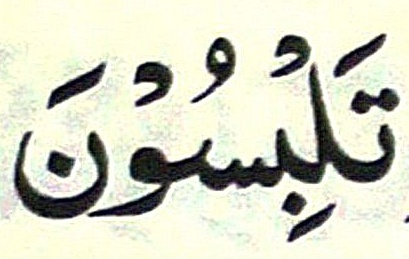 تَلْبِسُوْنَ